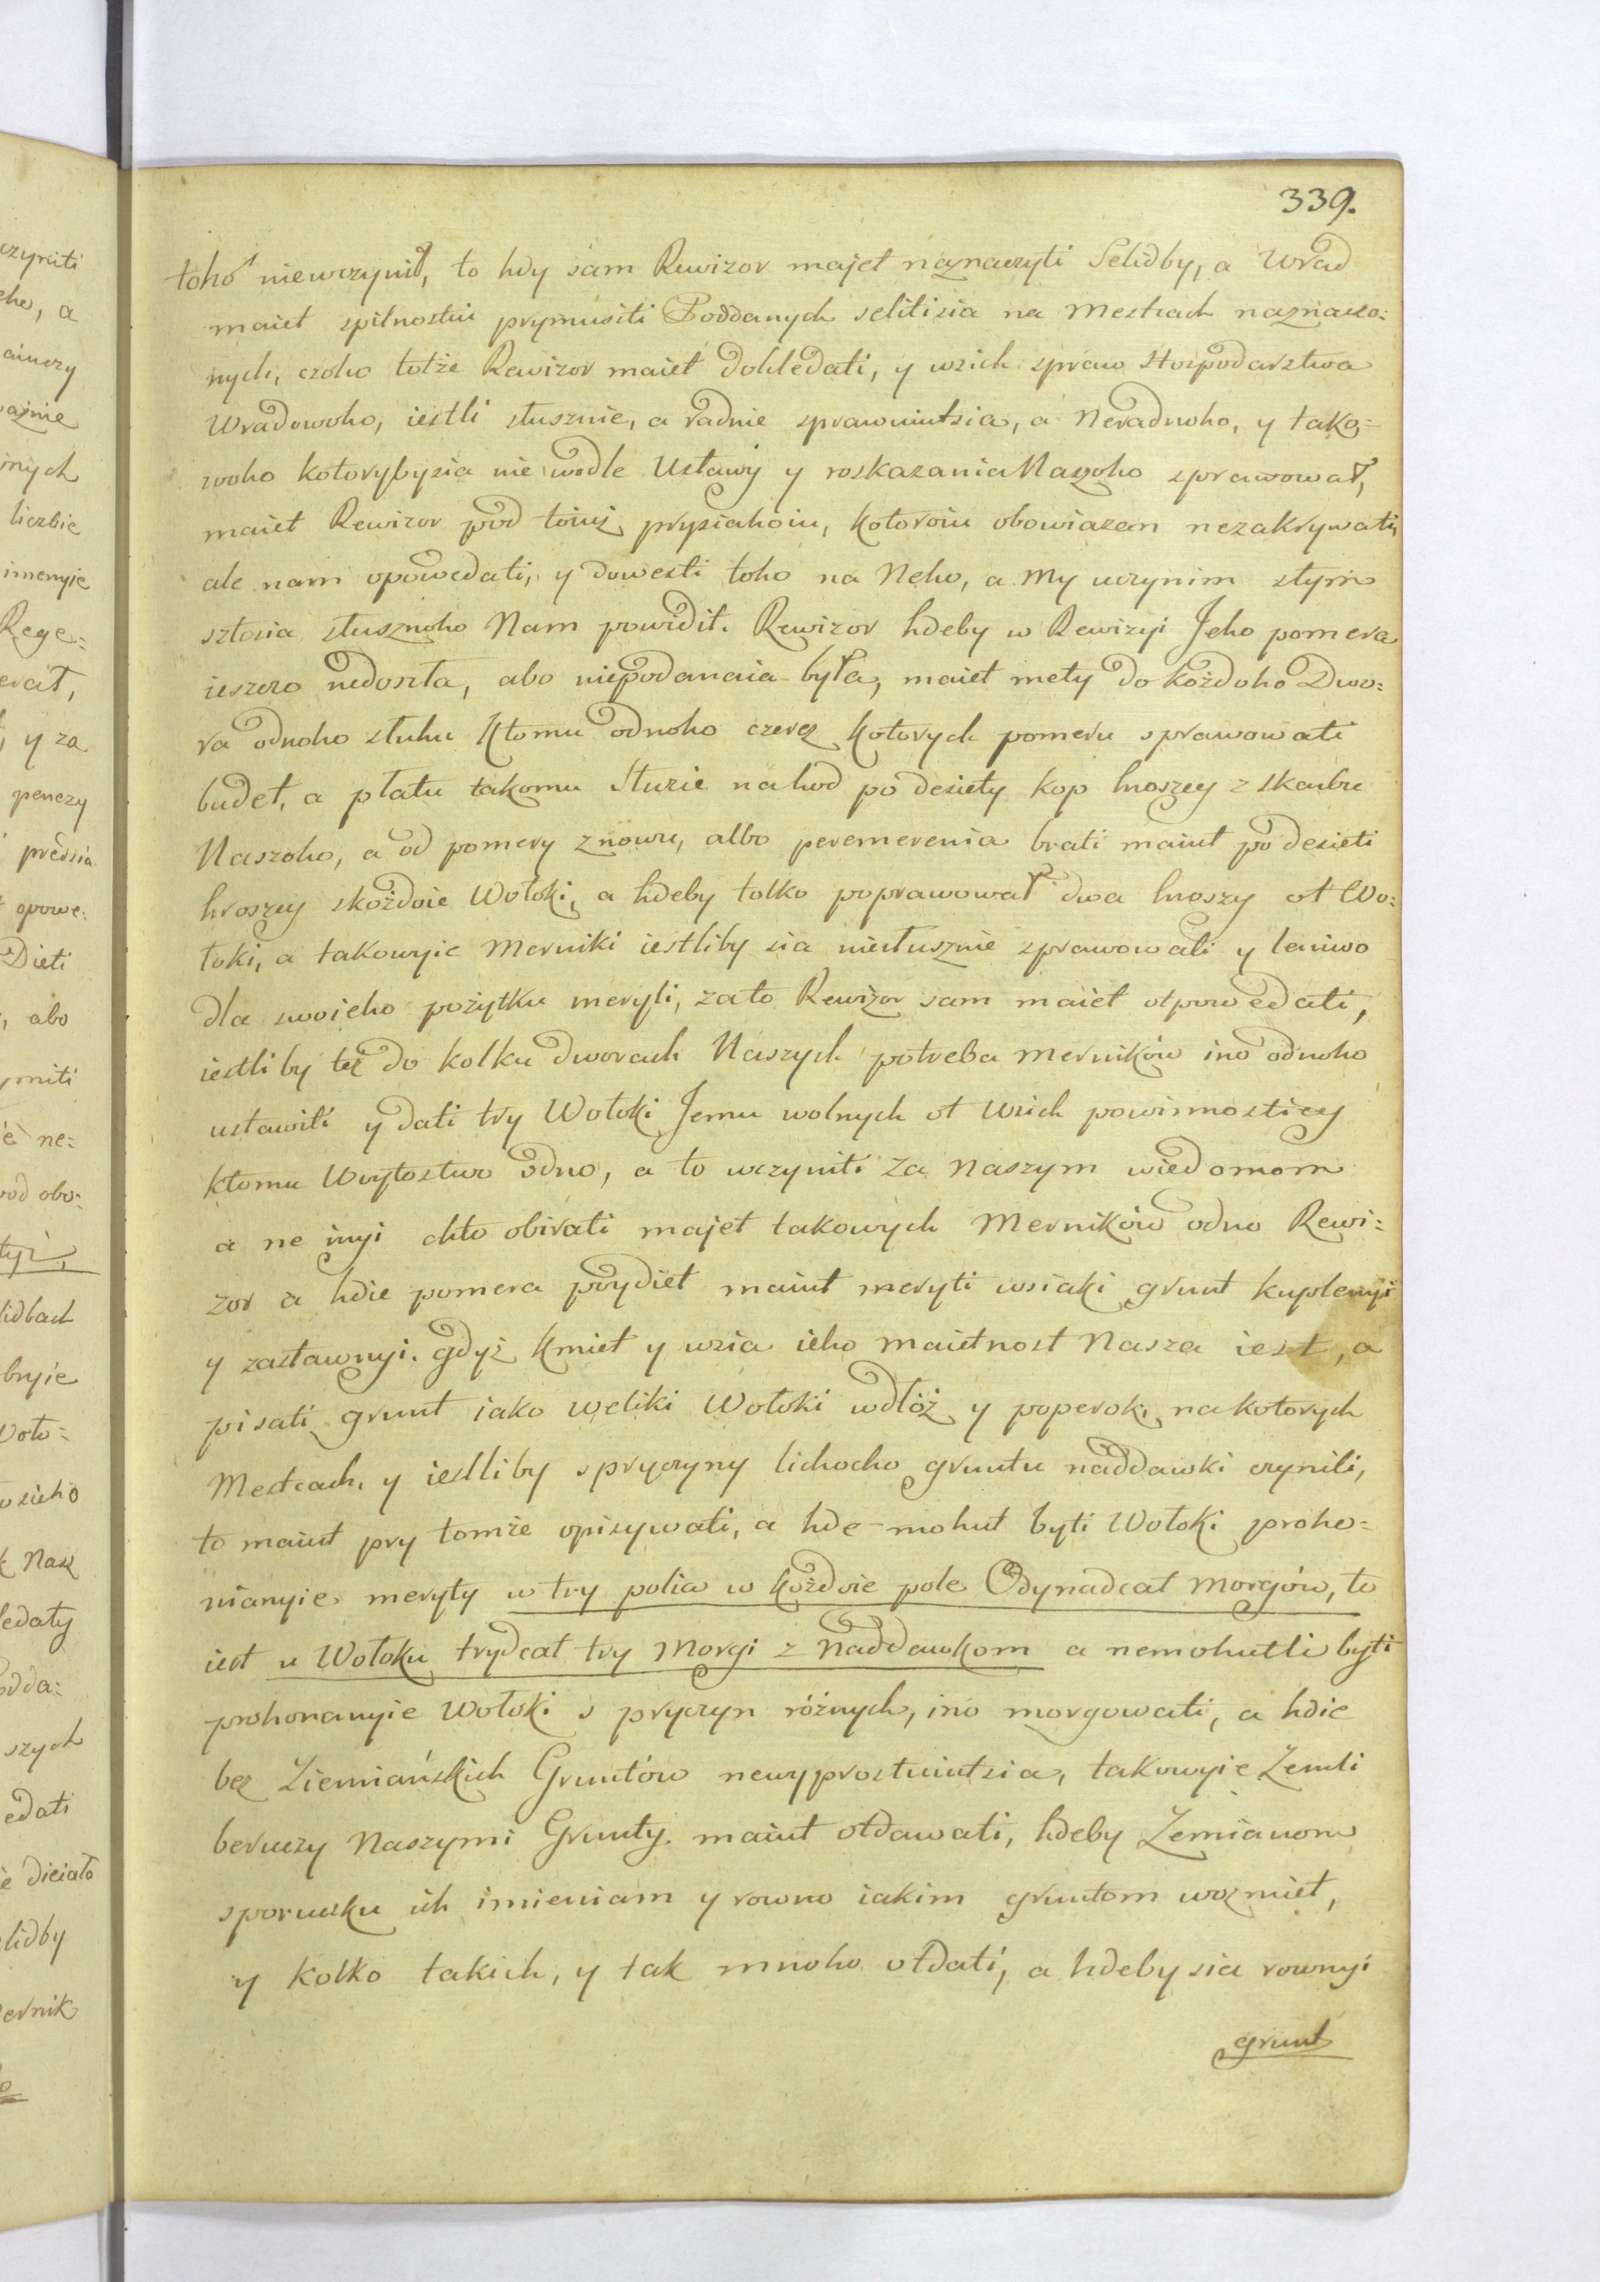 339.
toho niewczynił, to hdy sam Rewizor majet naznaczyti Selidby, a Wrad
maiet spilnostiu prymusiti Poddanych selitisia na Mestcach naznaczo:
nych, czoho totże Rewizor maiet dohledati, y wsich spraw Hospodarstwa
Wradowoho, iestli słusznie, a radnie sprawuiutsia, a Neradnoho, y tako=
woho kotorybysia nie wodle Ustawy y roskazania Naszoho sprawował,
maiet Rewizor pod toiuż prysiahoiu, kotoroiu obowiazan nezakrywati,
ale nam opowedati, y dowesti toho na Neho, a My uczynim stym
sztosia słusznoho Nam powidit. Rewizor hdeby w Rewizyi Jeho pomera
ieszczo niedoszła, abo niepodanaia była, maiet mety do kożdoho Dwo:
ra odnoho słuhu ktomu odnoho czerez kotorych pomeru sprawowati
budet, a płatu takomu Słuzie na hod po desiety kop hroszey z skarbu
Naszoho, a od pomery znowu, albo peremerenia brati maiut po desieti
hroszey skożdoie Wołoki, a hdeby tolko poprawował dwa hroszy ot Wo:
łoki, a takowyie Merniki iestliby sia niesłusznie sprawowali y leniwo
dla swoieho pożytku meryli, zato Rewizor sam maiet otpowedati,
iestliby też do kolku dworach Naszych potreba Merników ino odnoho
ustawiti y dati try Wołoki Jemu wolnych ot wsich powinnostiey
ktomu Woytostwo odno, a to uczyniti za naszym wiedomom
a ne inyi chto obirati majet takowych Merników odno Rewi:
zor a hdie pomera poydiet maiut meryti wsiaki grunt kuplenyi
y zastawnyi. gdyż kmiet y wsia ieho maietnost Nasza iest, a
pisati grunt iako weliki Wołoki wdłóż y poperok, na kotorych
Mestcach, y iestliby s pryczyny lichocho gruntu naddawki czynili,
to maiut pry tomże opisywati, a hde mohut byti Wołoki proho=
nianyie meryty w try polia w kożdoie pole Odynadcat morgów, to
iest u Wołoku trydcat try Morgi z Naddawkom a nemohutli byti
prohonanyie Wołoki s pryczyn różnych, ino morgowati, a hdie
bez Ziemiańskich Gruntów newyprostuiutsia, takowyie Zemli
beruczy Naszymi Grunty. maiut otdawati, hdeby Zemianom
sporucku ich imieniam y rowno iakim gruntom wozmiet,
y kolko takich, y tak mnoho otdati, a hdeby sia rownyi
grunt